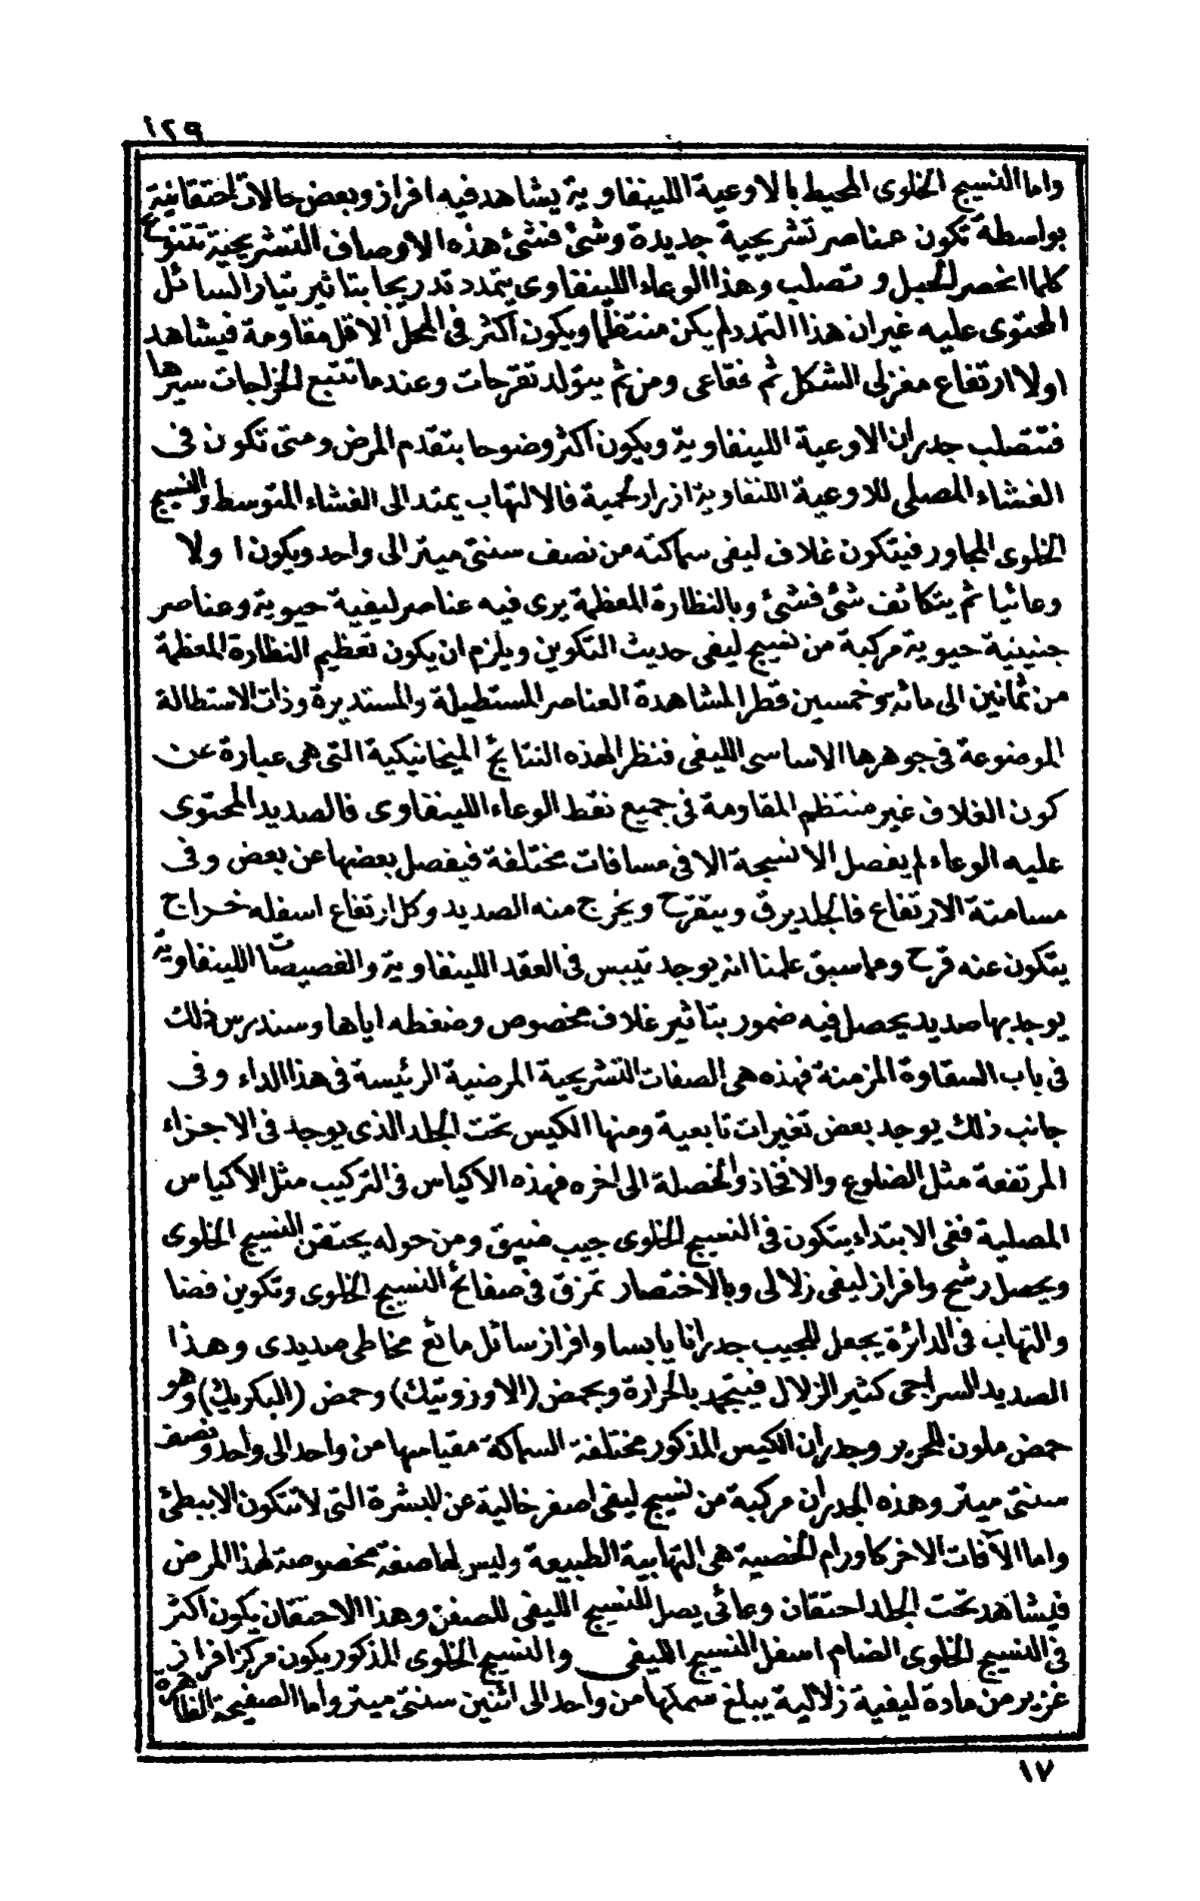 ١٢٩
واما النسيج الخلوى المحيط بالاوعية اللينفاوية يشاهد فيه افراز وبعض حالات احتقانية
بواسطة تكون عناصر تشريحية جديدة وشئ فشئ هذه الاوصاف التشريحية تتنوع
كلما انحصر الحبل وتصلب وهذا الوعاء اللينفاوى يتمدد تدريجا بتاثير تيار السائل
المحتوى عليه غير ان هذا التمدد لم يكن منتظما ويكون اكثر فى المحل الاقل مقاومة فيشاهد
اولا ارتفاع مغزلى الشكل ثم فقاعى ومن ثم يتولد تقرحات وعندما تتبع الخراجات سيرها
فتتصلب جدران الاوعية اللينفاوية ويكون اكثر وضوحا بتقدم المرض ومتى تكون فى
الغشاء المصلى للاوعية اللنفاوية ازرار لحمية فالالتهاب يمتد الى الغشاء المتوسط والنسيج
الخلوى المجاور فيتكون غلاف ليفى سماكته من نصف سنتى ميتر الى واحد ويكون اولا
وعائيا ثم يتكاثف شئ فشئ وبالنظارة المعظمة يرى فيه عناصر ليفية حيوية وعناصر
جنينية حيوية مركبة من نسيج ليفى حديث التكوين ويلزم ان يكون تعظيم النظارة المعظمة
من ثمانين الى مائه وخمسين قطر المشاهدة العناصر المستطيلة والمستديرة وذات الاستطالة
الموضوعة فى جوهرها الاساسى الليفى فنظر الهذه النتائج الميخانيكية التى هى عبارة عن
كون الغلاف غير منتظم المقاومة فى جميع نقط الوعاء اللينفاوى فالصديد المحتوى
عليه الوعاء لم يفصل الانسجة الا فى مسافات مختلفة فيفصل بعضها عن بعض وفى
مسامتة الارتفاع فالجلد يرق ويتقرح ويخرج منه الصديد وكل ارتفاع اسفله خراج
يتكون عنه قرح ومماسبق علمنا انه يوجد تيبس فى العقد اللينفاوية والفصيصات اللينفاوية
يوجد بها صديد يحصل فيه ضمور بتاثير غلاف مخصوص وضغطه اياها وسندرس ذلك
فى باب السقاوة المزمنة فهذه هى الصفات التشريحية المرضية الرئيسة فى هذا الداء وفى
جانب ذلك يوجد بعض تغيرات تابعية ومنها الكيس تحت الجلد الذى يوجد فى الاجزاء
المرتفعة مثل الضلوع والافخاذ والخصلة الى اخره فهذه الاكياس فى التركيب مثل الاكياس
المصلية ففى الابتداء يتكون فى النسيج الخلوى جيب ضيق ومن حوله يحتقن النسيج الخلوى
ويحصل رشح وافراز ليفى زلالى وبالاختصار تمزق فى صفائح النسيج الخلوى وتكوين فضا
والتهاب فى الدائرة يجعل للجيب جدرانا يابسا وافراز سائل مائع مخاطى صديدى وهذا
الصديد السراجى كثير الزلال فيتجمد بالحرارة وبحمض (الاوزوتيك) وحمض (البكريك) وهو
حمض ملون للحرير وجدران الكيس المذكور مختلفة السماكة مقياسها من واحد الى واحد ونصف
سنتى ميتر وهذه الجدران مركبة من نسيج ليفى اصفر خالية عن البشرة التى لا تتكون الا ببطئ
واما الآفات الاخر كاورام الخصية هى التهابية الطبيعة وليس لها صفة مخصوصة لهذا المرض
فيشاهد تحت الجلد احتقان وعائى يصل للنسيج الليفى للصفن وهذا الاحتقان يكون اكثر
فى النسيج الخلوى الضام اسفل النسيج الليفى والنسيج الخلوى المذكور يكون مركز افراز
غزير من مادة ليفية زلالية يبلغ سمكها من واحد الى اثنين سنتى ميتر واما الصفيحة الظاهرة
١٧